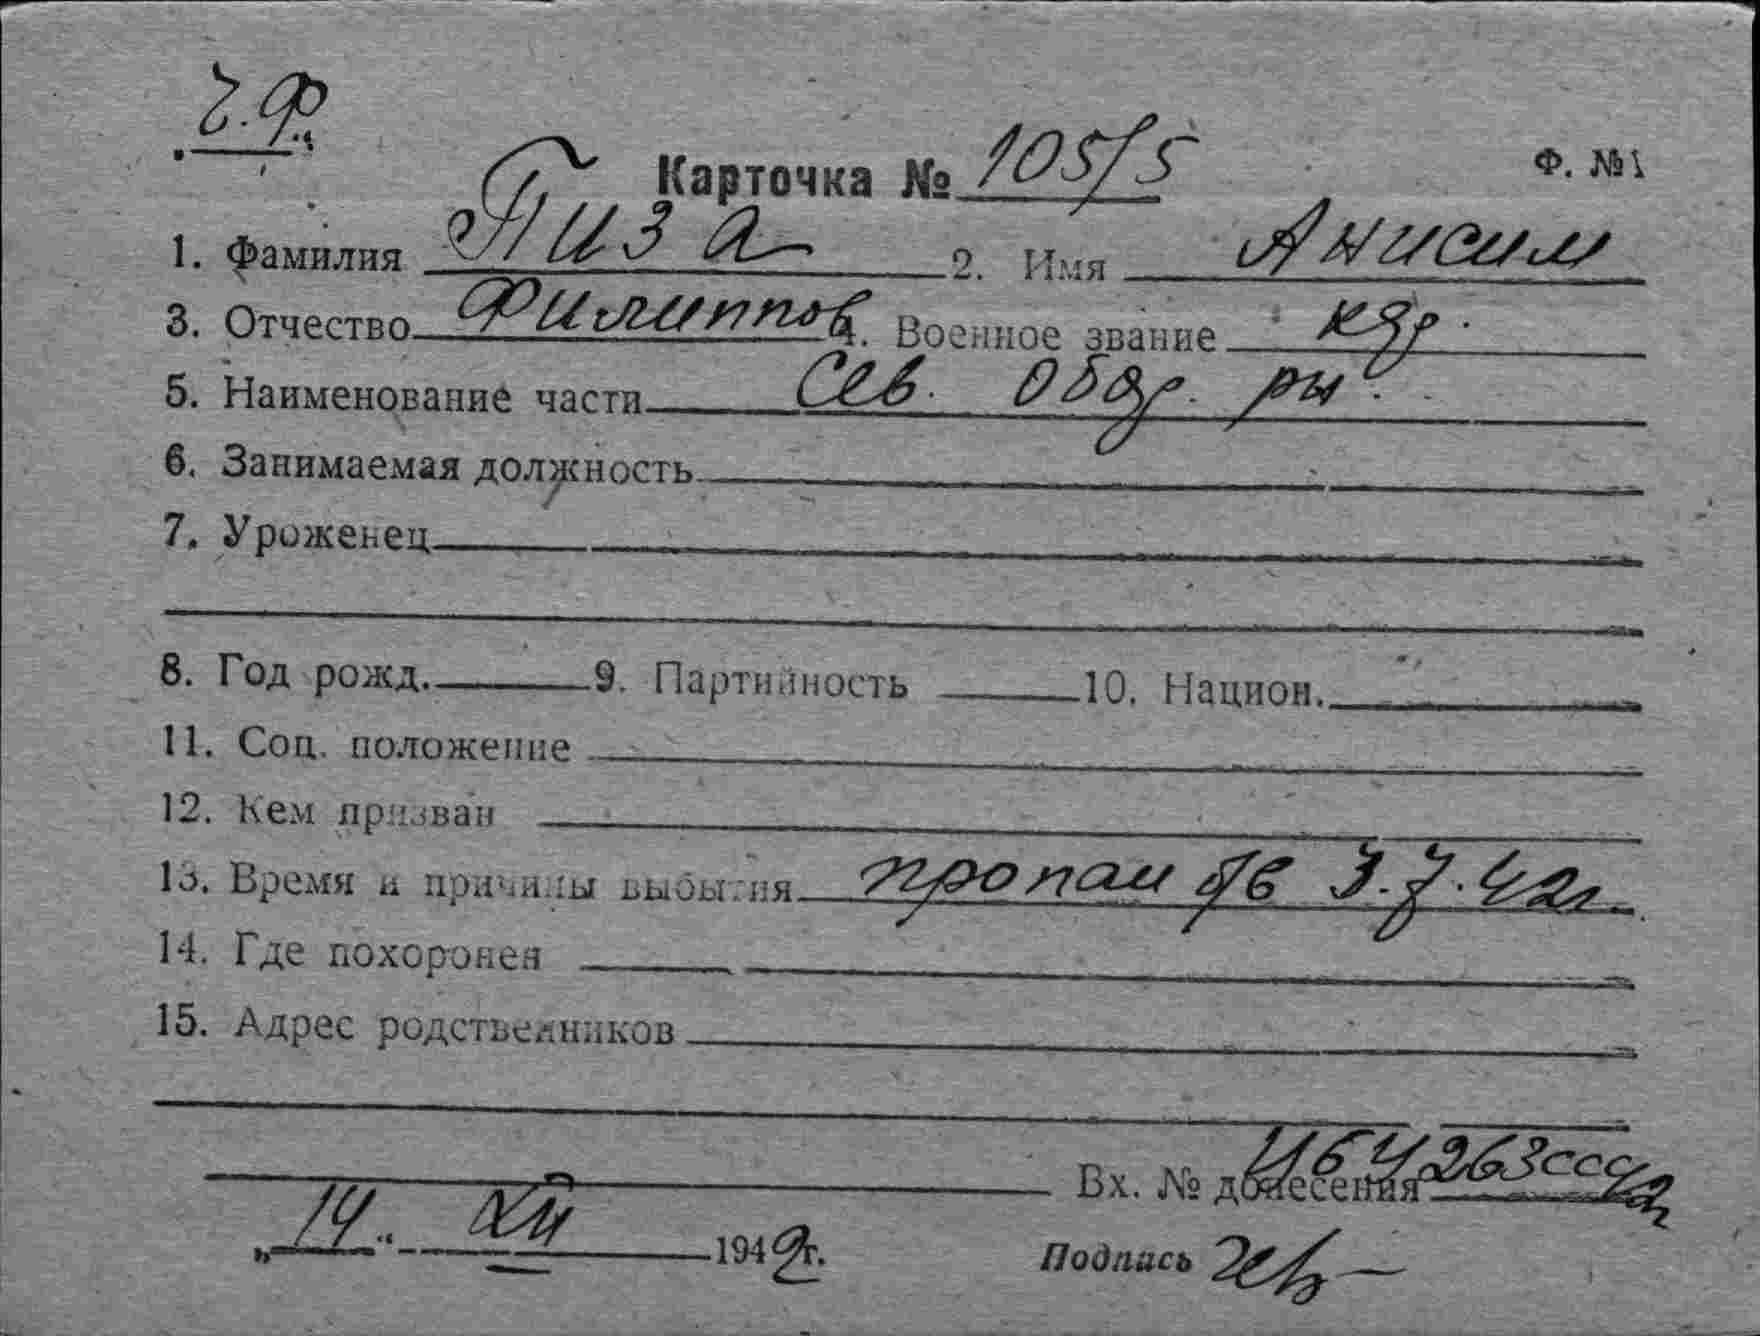 Ч.Ф.
Карточка № 105/5 Ф. №1
1. Фамилия Пиза 2. Имя Анисим
3. Отчество Филиппов 4. Военное звание кдр.
5. Наименование части Сев. Обор. р-н.
6. Занимаемая должность
7. Уроженец
8. Год рожд. 9. Партийность 10. Национ.
11. Соц. положение
12. Кем призван
13. Время и причины выбытия пропал б/в 3.7.42г.
14. Где похоронен
15. Адрес родственников
Вх. № донесения
„14“ XII 1942г. Подпись